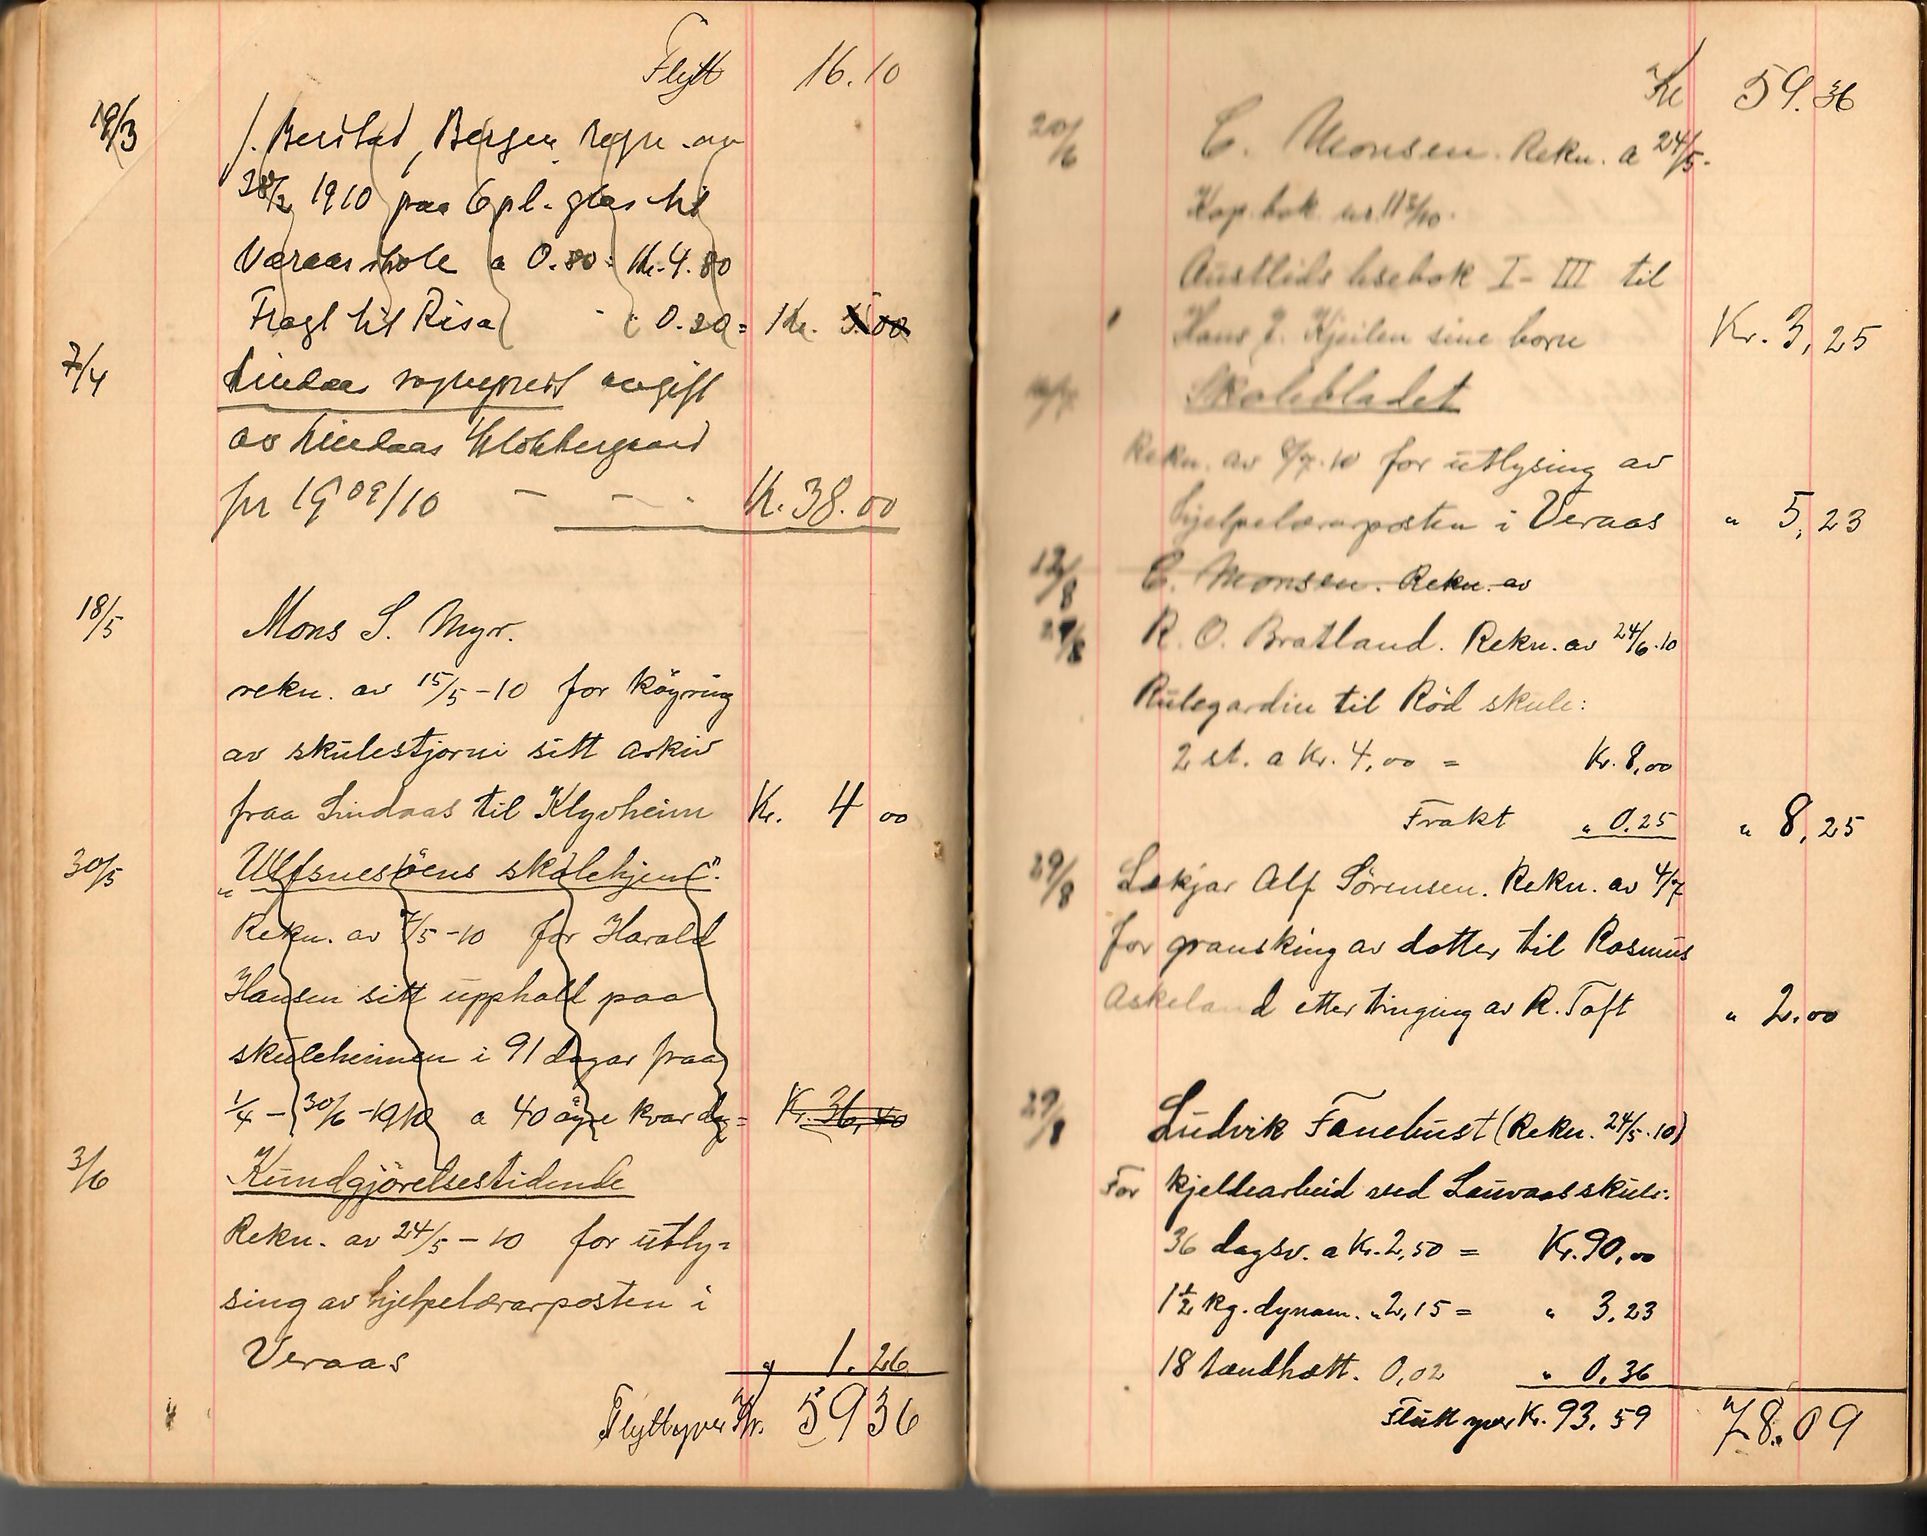 Flytt 16.10
19/3 J. Berstad, Bergen regn. av
28/2 1910 paa 6 pl. glas til
Veraas skole a 0.80 = Kr. 4.80
Fragt til Risa " 0.20 = Kr. 5.00
7/4 Lindaas sogneprest avgift
av Lindaas Klokkergaard
for 1909/10 - - - Kr. 38.00
18/5 Mons S. Myr.
rekn. av 15/5-10 for köyring
av skulestjorni sitt arkiv
fraa Lindaas til Klyvheim Kr. 4 00
30/5 "Ulfsnesöens skolehjem".
Rekn. av 7/5-10 for Harald
Hansen sitt upphald paa
skuleheimen i 91 dagar fraa
1/4 - 30/6 -1910 a 40 öyre kvar dag = Kr. 36,40
3/6 Kundgjörelsestidende
Rekn. av 24/5-10 for utly=
sing av hjelpelærarposten i
Veraas " 1.26
Flytt yver Kr. 5936
Kr 59.36
20/6 C. Monsen. Rekn. a 24/5.
Kop. bok nr.
Austlids lesebok I-III til
Hans J. Kjeilen sine born Kr. 3,25
Skolebladet
Rekn. av 6/7.10 for utlysing av
hjelpelærarposten i Veraas " 5,23
12/8 C. Monsen. Rekn. av
29/8 R. O. Bratland. Rekn. av 24/6.10
Rulegardin til Rød skule:
2 st. a Kr. 4,00 = Kr. 8,00
Frakt " 0.25 " 8,25
29/8 Lækjar Alf Sörensen. Rekn. av 4/7
for gransking av dotter til Rasmus
Askeland etter tinging av R. Toft " 2.00
29/8 Ludvik Fanebust (Rekn. 24/5.10)
For kjeldearbeid ved Lauvaas skule:
36 dagsv. a Kr. 2,50 = Kr. 90,00
1 1/2 kg. dynam. " 2,15 = " 3,23
18 tændhætt. 0,02 " 0,36
Flutt yver Kr. 93.59 78.09